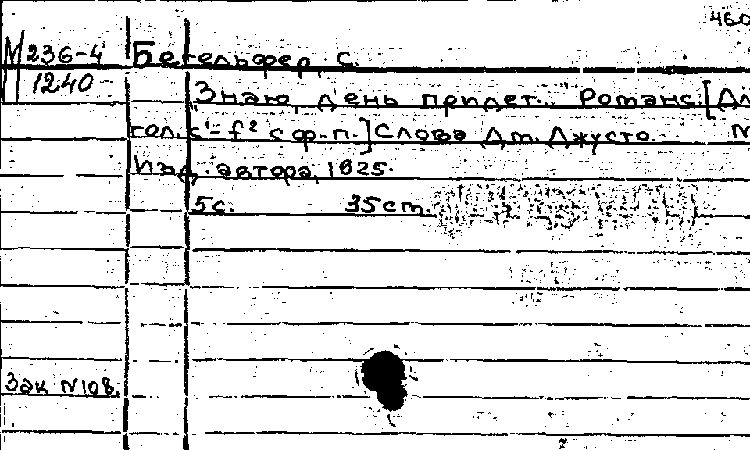 460
М 236-4 Бетельфер, С.
1240 "Знаю, день придет..." Романс. [Дл
гол. с¹-f² с ф.-п.] Слова Дм. Джусто. М
Изд. автора, 1925.
5с. 35 cm.
Зак N 108.